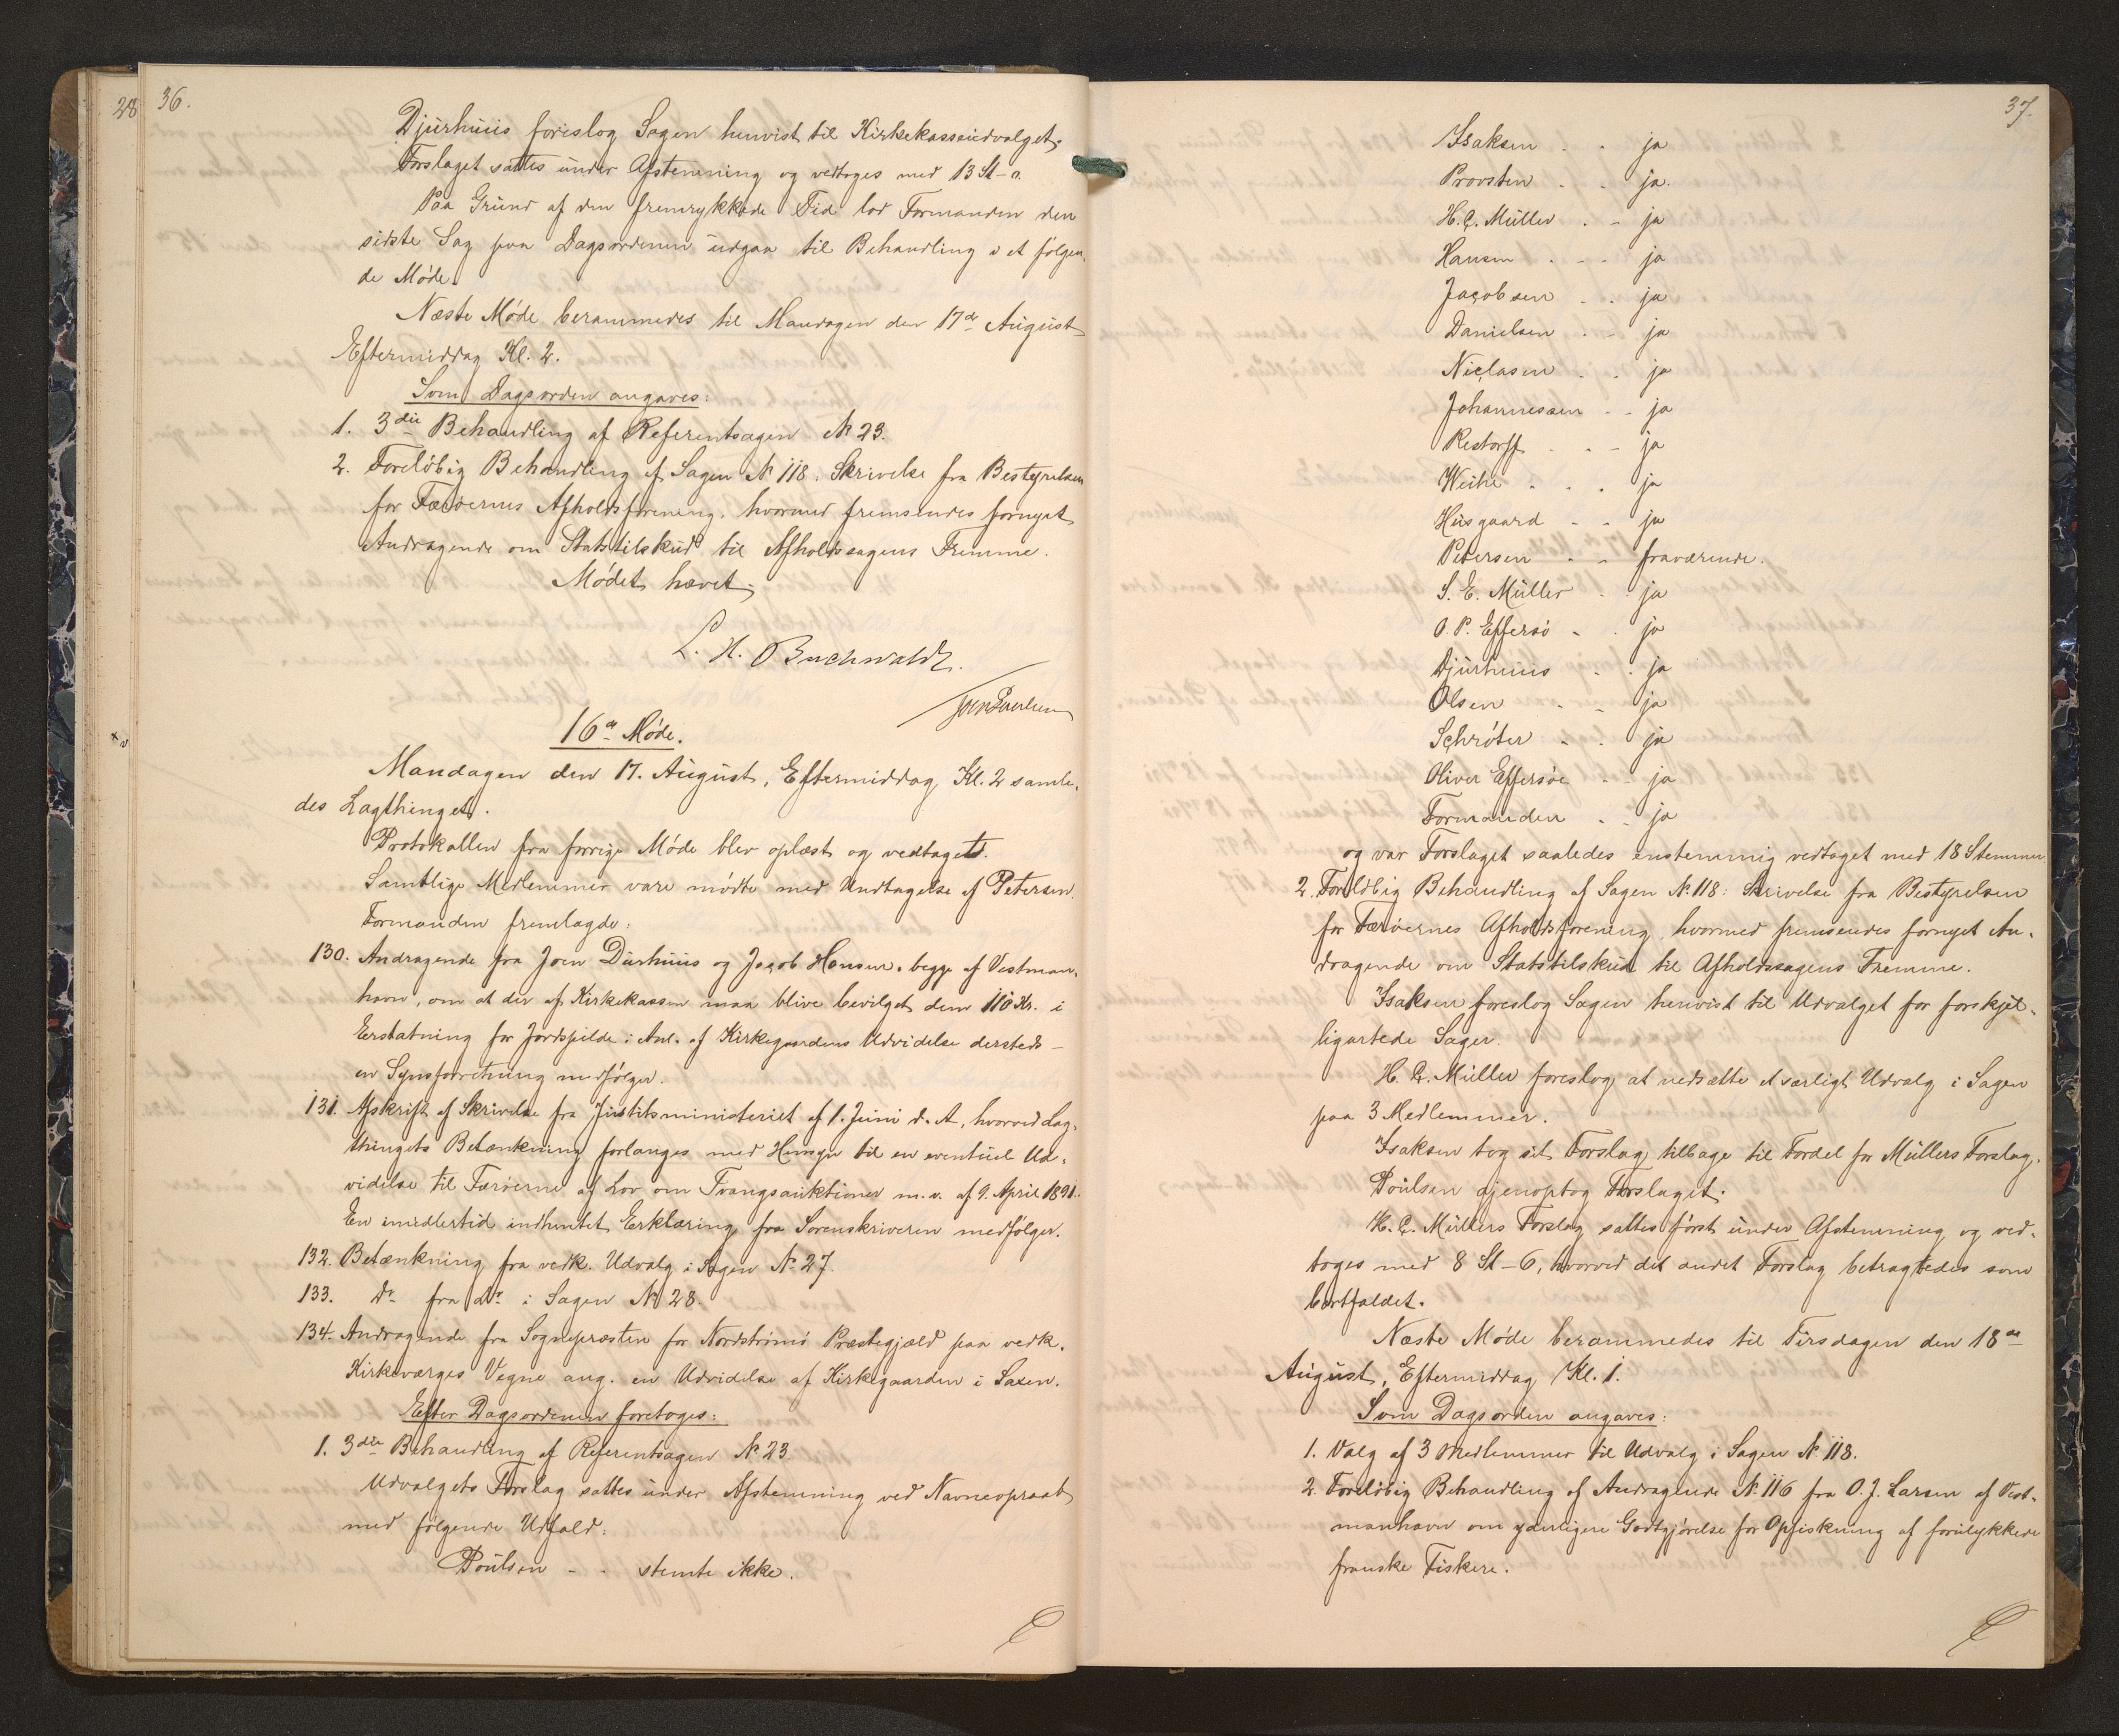 28
36.
Djurhuus foreslog Sagen henvist til Kirkekasseudvalget.
Forslaget sattes under Afstemning og vedtoges med 13 St – 0.
Paa Grund af den fremrykkede Tid lod Formanden den
sidste Sag paa Dagsordenen udgaa til Behandling i et følgen-
de Møde.
Næste Møde berammedes til Mandagen den 17de August
Eftermiddag Kl. 2.
Som Dagsorden angaves:
1. 3die Behandling af Referentsagen № 23.
2. Foreløbig Behandling af Sagen № 118: Skrivelse fra Bestyrelsen
for Færøernes Afholdsforening, hvormed fremsendes fornyet
Andragende om Statstilskud til Afholdssagens Fremme.
Mødet hævet.
L. H. Buchwaldt.
Joen Poulsen
16de Møde.
Mandagen den 17. August, Eftermiddag Kl. 2 samle-
des Lagthinget.
Protokollen fra forrige Møde blev oplæst og vedtaget.
Samtlige Medlemmer vare mødte med Undtagelse af Petersen.
Formanden fremlagde:
130. Andragende fra Joen Diurhuus og Jacob Hansen, begge af Vestman-
havn, om at der af Kirkekassen maa blive bevilget dem 110 Kr. i
Erstatning for Jordspilde i Anl. af Kirkegaardens Udvidelse dersteds –
en Synsforretning medfølger.
131. Afskrift af Skrivelse fra Justitsministeriet af 1. Juni d. A., hvorved Lag-
thingets Betænkning forlanges med Hensyn til en eventuel Ud-
videlse til Færøerne af Lov om Tvangsauktioner m. v. af 9. April 1891.
En imidlertid indhentet Erklæring fra Sorenskriveren medfølger.
132. Betænkning fra vedk. Udvalg i Sagen № 27.
133. Do fra do i Sagen № 28.
134. Andragende fra Sognepræsten for Nordstrømø Præstegjæld paa vedk.
Kirkeværges Vegne ang. en Udvidelse af Kirkegaarden i Saxen.
Efter Dagsordenen foretoges:
1. 3die Behandling af Referentsagen № 23.
Udvalgets Forslag sattes under Afstemning ved Navneopraab
med følgende Udfald:
Poulsen - - stemte ikke.
37.
Isaksen - - ja
Provsten - - ja.
H. C. Müller - - ja
Hansen - - - ja
Jacobsen - - ja
Danielsen - - ja
Niclasen - - ja
Johannessen - - ja
Restorff - - - ja
Weihe - - - ja
Husgaard - - ja
Petersen - - fraværende.
S. E. Müller - - ja
O. P. Effersø - - ja
Djurhuus - - ja
Olsen - - ja
Schrøter - - ja
Oliver Effersøe - - ja
Formanden - - ja
og var Forslaget saaledes enstemmig vedtaget med 18 Stemmer
2. Foreløbig Behandling af Sagen № 118: Skrivelse fra Bestyrelsen
for Færøernes Afholdsforening, hvormed fremsendes fornyet An-
dragende om Statstilskud til Afholdssagens Fremme.
Isaksen foreslog Sagen henvist til Udvalget for forskjel-
ligartede Sager.
H. C. Müller foreslog at nedsætte et særligt Udvalg i Sagen
paa 3 Medlemmer.
Isaksen tog sit Forslag tilbage til Fordel for Müllers Forslag.
Poulsen gjenoptog Forslaget.
H. C. Müllers Forslag sattes først under Afstemning og ved-
toges med 8 St – 6, hvorved det andet Forslag betragtedes som
bortfaldet.
Næste Møde berammedes til Tirsdagen den 18de
August, Eftermiddag Kl. 1.
Som Dagsorden angaves:
1. Valg af 3 Medlemmer til Udvalg i Sagen № 118.
2. Foreløbig Behandling af Andragende № 116 fra O. J. Larsen af Vest-
manhavn om yderligere Godtgjørelse for Opfiskning af forulykkede
franske Fiskere.